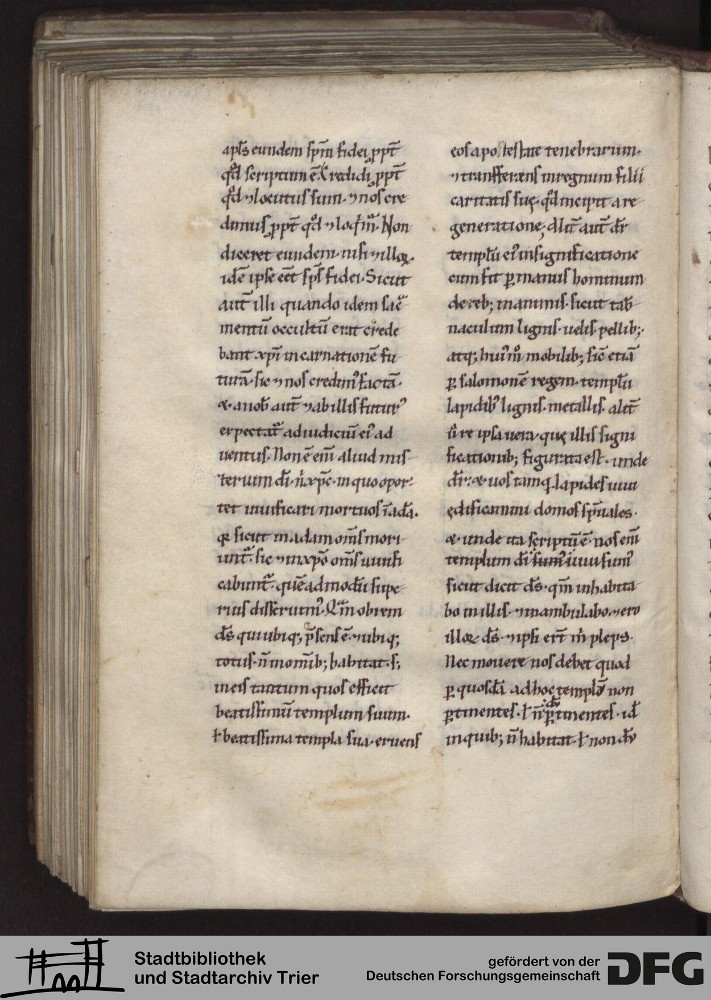 apl̄s eundem sp̄m fidei ꝓpt̄
qd̄ scriptum ē. Credidi ꝓpt̄
qd̄ ⁊ locutus sum. ⁊ nos cre
dimus ꝓpt̄ qd̄ ⁊ loq̄m̄. Non
diceret eundem. nisi ⁊ illoꝝ.
idē ipse eēt sp̄s fidei. Sicut
aut̄ illi quando idem sac̄
mentū occultū erat crede
bant xp̄i incarnationē fu
turā. sic ⁊ nos credimꝰ factā.
& a nob̄ aut̄ ⁊ ab illis futurꝰ
expectat᷑ ad iudiciū eiꝰ ad
uentus. Non ē enī aliud mis
terium dī. n̄ xp̄c. in quo opor
tet uiuificari mortuos ī adā.
qꝛ sicut in adam om̄s mori
unt᷑. sic ⁊ in xp̄o om̄s uiuifi
cabunt᷑. quēadmodū supe
rius disseruimꝰ. Qm̄ obrem
ds̄ qui ubiqꝫ p̄sens ē. ⁊ ubiqꝫ
totus. n̄ in om̄ibꝫ habitat. sꝫ
in eis tantum quos efficit
beatissimū templum suum.
ł beatissima templa sua. eruens
eos a potestate tenebrarum.
⁊ transferens in regnum filii
caritatis suę. qd̄ incipit a re
generatione. Alit̄ aut̄ dr̄
templū eiꝰ in significatione
cum fit ꝑ manus hominum
de rebꝫ inanimis. sicut tab̄
naculum lignis. uelis. pellibꝫ.
atqꝫ huiꝰm̊ mobilibꝫ. sic̄ etiā
ꝑ salomonē regem. templū
lapidibꝰ lignis. metallis. alit̄
ū re ipsa uera. quę illis signi
ficationibꝫ figurata est. unde
dr̄. & uos tamqͣ lapides uiui
ędificamini domos sp̄uales.
& unde ita scriptū ē. nos enī
templum dī uiui sumꝰ
sicut dicit ds̄. qm̄ inhabita
bo in illis. ⁊ inambulabo. ⁊ ero
illoꝝ ds̄. ⁊ ipsi er̄t m̄ pleps.
Nec mouere nos debet quod
ꝑ quosdā ad hoc templū non
ꝑtinentes. ł n̄dū ꝑtinentes. id̄
in quibꝫ n̄ habitat ł nondū
Stadtbibliothek
und Stadtarchiv Trier
gefördert von der
Deutschen Forschungsgemeinschaft
DFG